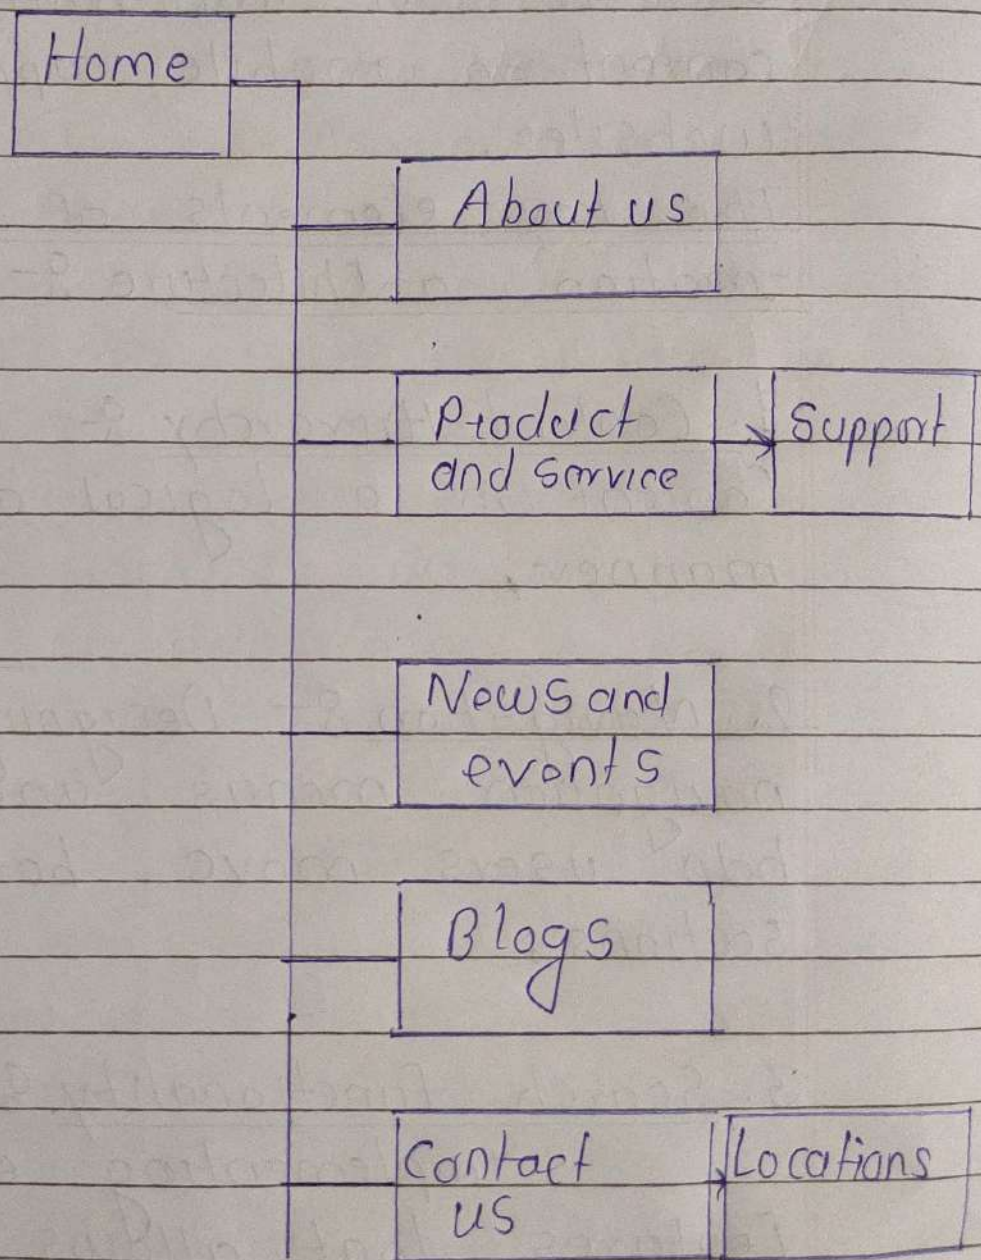 Home
About us
Product
and service
Support
News and
events
Blogs
Contact
us
Locations